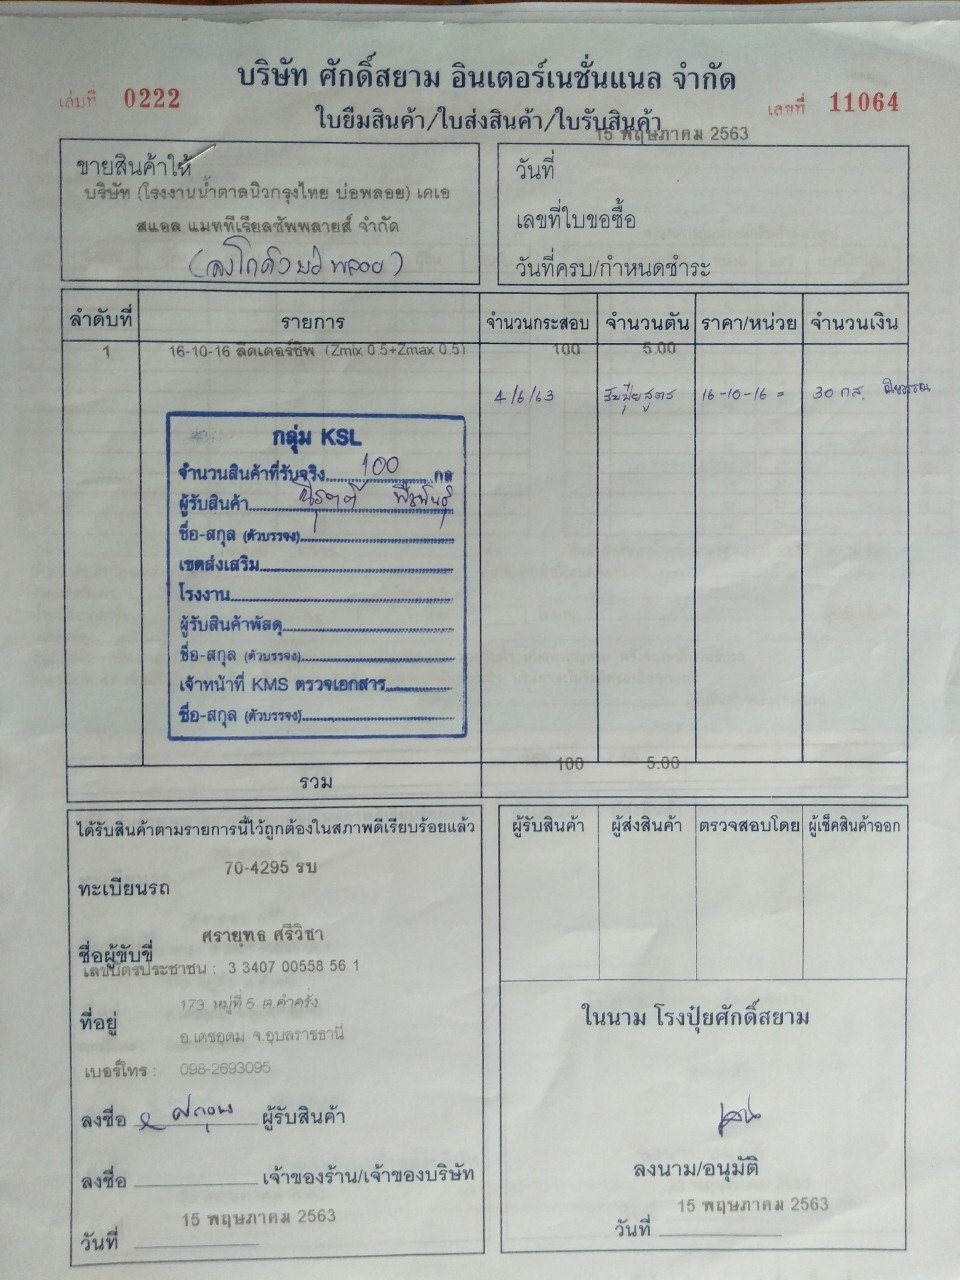 บริษัท ศักดิ์สยาม อินเตอร์เนชั่นแนล จำกัด
เล่มที่ 0222
เลขที่ 11064
ใบยืมสินค้า/ใบส่งสินค้า/ใบรับสินค้า
15 พฤษภาคม 2563
ขายสินค้าให้
บริษัท (โรงงานน้ำตาลนิวกรุงไทย บ่อพลอย) เคเอ
สแอล แมททีเรียลซัพพลายส์ จำกัด
(ลงโกดังบ่อพลอย)
วันที่
เลขที่ใบขอซื้อ
วันที่ครบ/กำหนดชำระ
ลำดับที่ รายการ จำนวนกระสอบ จำนวนตัน ราคา/หน่วย จำนวนเงิน
1 16-10-16 ลีดเดอร์ชิพ (Zmix 0.5+Zmax 0.5) 100 5.00
4/6/63 รับปุ๋ยสูตร 16-10-16 = 30 กส.
กลุ่ม KSL
จำนวนสินค้าที่รับจริง 100 กส
ผู้รับสินค้า
ชื่อ-สกุล (ตัวบรรจง)
เขตส่งเสริม
โรงงาน
ผู้รับสินค้าพัสดุ
ชื่อ-สกุล (ตัวบรรจง)
เจ้าหน้าที่ KMS ตรวจเอกสาร
ชื่อ-สกุล (ตัวบรรจง)
รวม 100 5.00
ได้รับสินค้าตามรายการนี้ไว้ถูกต้องในสภาพดีเรียบร้อยแล้ว
ทะเบียนรถ 70-4295 รบ
ชื่อผู้ขับขี่ ศรายุทธ ศรีวิชา
เลขบัตรประชาชน : 3 3407 00558 56 1
ที่อยู่ 173 หมู่ที่ 5 ต.คำครั่ง
อ.เดชอุดม จ.อุบลราชธานี
เบอร์โทร : 098-2693095
ลงชื่อ ผู้รับสินค้า
ลงชื่อ เจ้าของร้าน/เจ้าของบริษัท
วันที่ 15 พฤษภาคม 2563
ผู้รับสินค้า ผู้ส่งสินค้า ตรวจสอบโดย ผู้เช็คสินค้าออก
ในนาม โรงปุ๋ยศักดิ์สยาม
ลงนาม/อนุมัติ
วันที่ 15 พฤษภาคม 2563